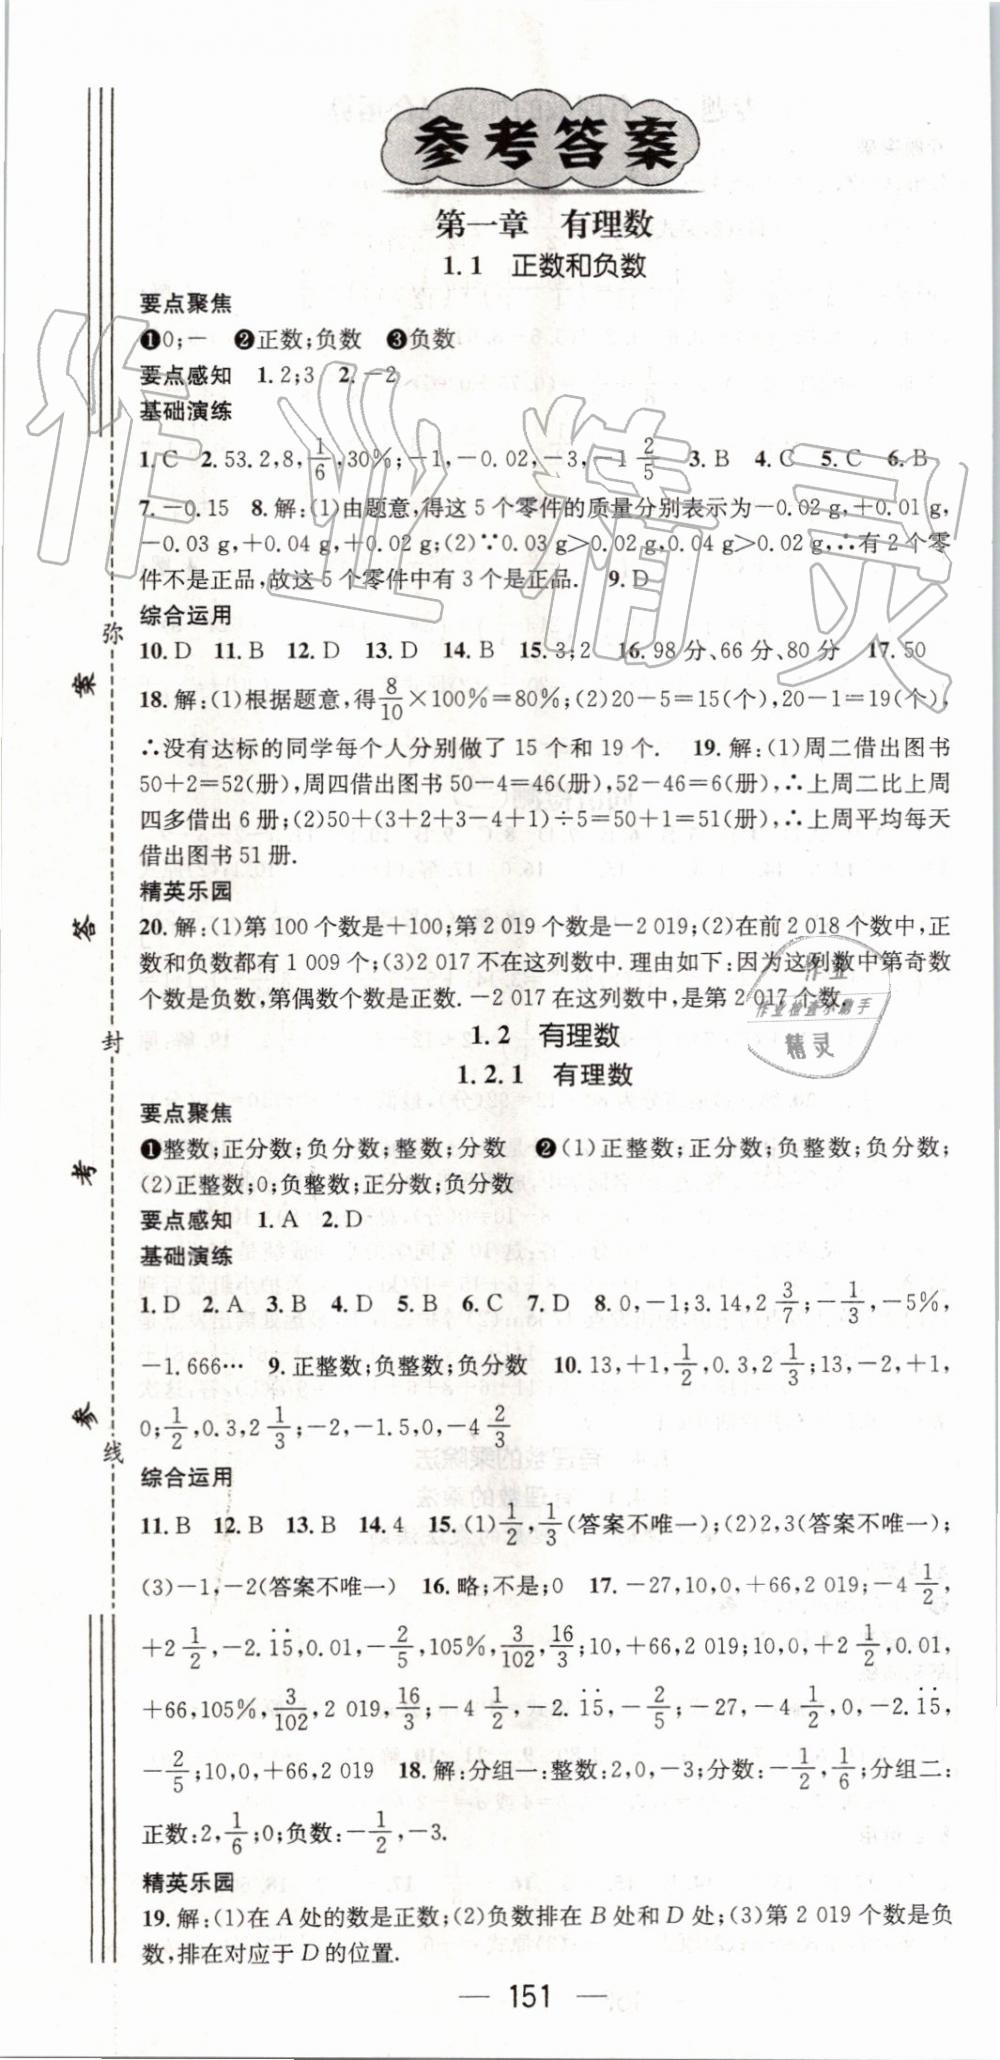 参考答案
第一章　有理数
1.1　正数和负数
要点聚焦
❶0;－　❷正数;负数　❸负数
要点感知　1.2;3　2.－2
基础演练
1.C　2.53.2,8,1/6,30%;－1,－0.02,－3,－1 2/5　3.B　4.C　5.C　6.B
7.－0.15　8.解:(1)由题意,得这 5 个零件的质量分别表示为－0.02 g,＋0.01 g,
－0.03 g,＋0.04 g,＋0.02 g;(2)∵0.03 g＞0.02 g,0.04 g＞0.02 g,∴有 2 个零
件不是正品,故这 5 个零件中有 3 个是正品.　9.D
综合运用
10.D　11.B　12.D　13.D　14.B　15.3;2　16.98 分、66 分、80 分　17.50
18.解:(1)根据题意,得8/10×100%＝80%;(2)20－5＝15(个),20－1＝19(个),
∴没有达标的同学每个人分别做了 15 个和 19 个.　19.解:(1)周二借出图书
50＋2＝52(册),周四借出图书 50－4＝46(册),52－46＝6(册),∴上周二比上周
四多借出 6 册;(2)50＋(3＋2＋3－4＋1)÷5＝50＋1＝51(册),∴上周平均每天
借出图书 51 册.
精英乐园
20.解:(1)第 100 个数是＋100;第 2 019 个数是－2 019;(2)在前 2 018 个数中,正
数和负数都有 1 009 个;(3)2 017 不在这列数中.理由如下:因为这列数中第奇数
个数是负数,第偶数个数是正数.－2 017 在这列数中,是第 2 017 个数.
1.2　有理数
1.2.1　有理数
要点聚焦
❶整数;正分数;负分数;整数;分数　❷(1)正整数;正分数;负整数;负分数;
(2)正整数;0;负整数;正分数;负分数
要点感知　1.A　2.D
基础演练
1.D　2.A　3.B　4.D　5.B　6.C　7.D　8.0,－1;3.14,2 3/7;－1/3,－5%,
－1.666…　9.正整数;负整数;负分数　10.13,＋1,1/2,0.3,2 1/3;13,－2,＋1,
0;1/2,0.3,2 1/3;－2,－1.5,0,－4 2/3
综合运用
11.B　12.B　13.B　14.4　15.(1)1/2,1/3(答案不唯一);(2)2,3(答案不唯一);
(3)－1,－2(答案不唯一)　16.略;不是;0　17.－27,10,0,＋66,2 019;－4 1/2,
＋2 1/2,－2.1̇5̇,0.01,－2/5,105%,3/102,16/3;10,＋66,2 019;10,0,＋2 1/2,0.01,
＋66,105%,3/102,2 019,16/3;－4 1/2,－2.1̇5̇,－2/5;－27,－4 1/2,0,－2.1̇5̇,
－2/5;10,0,＋66,2 019　18.解:分组一:整数:2,0,－3;分数:－1/2,1/6;分组二:
正数:2,1/6;0;负数:－1/2,－3.
精英乐园
19.解:(1)在 A 处的数是正数;(2)负数排在 B 处和 D 处;(3)第 2 019 个数是负
数,排在对应于 D 的位置.
— 151 —
弥
封
线
案
答
考
参
作业精灵
作业
作业检查小助手
精灵